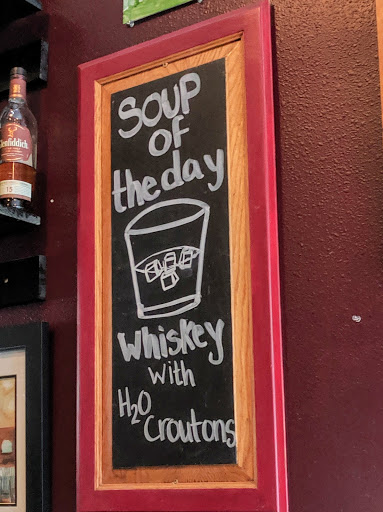 Glenfiddich
15
SOUP
OF
the day
Whiskey
With
H2O
Croutons